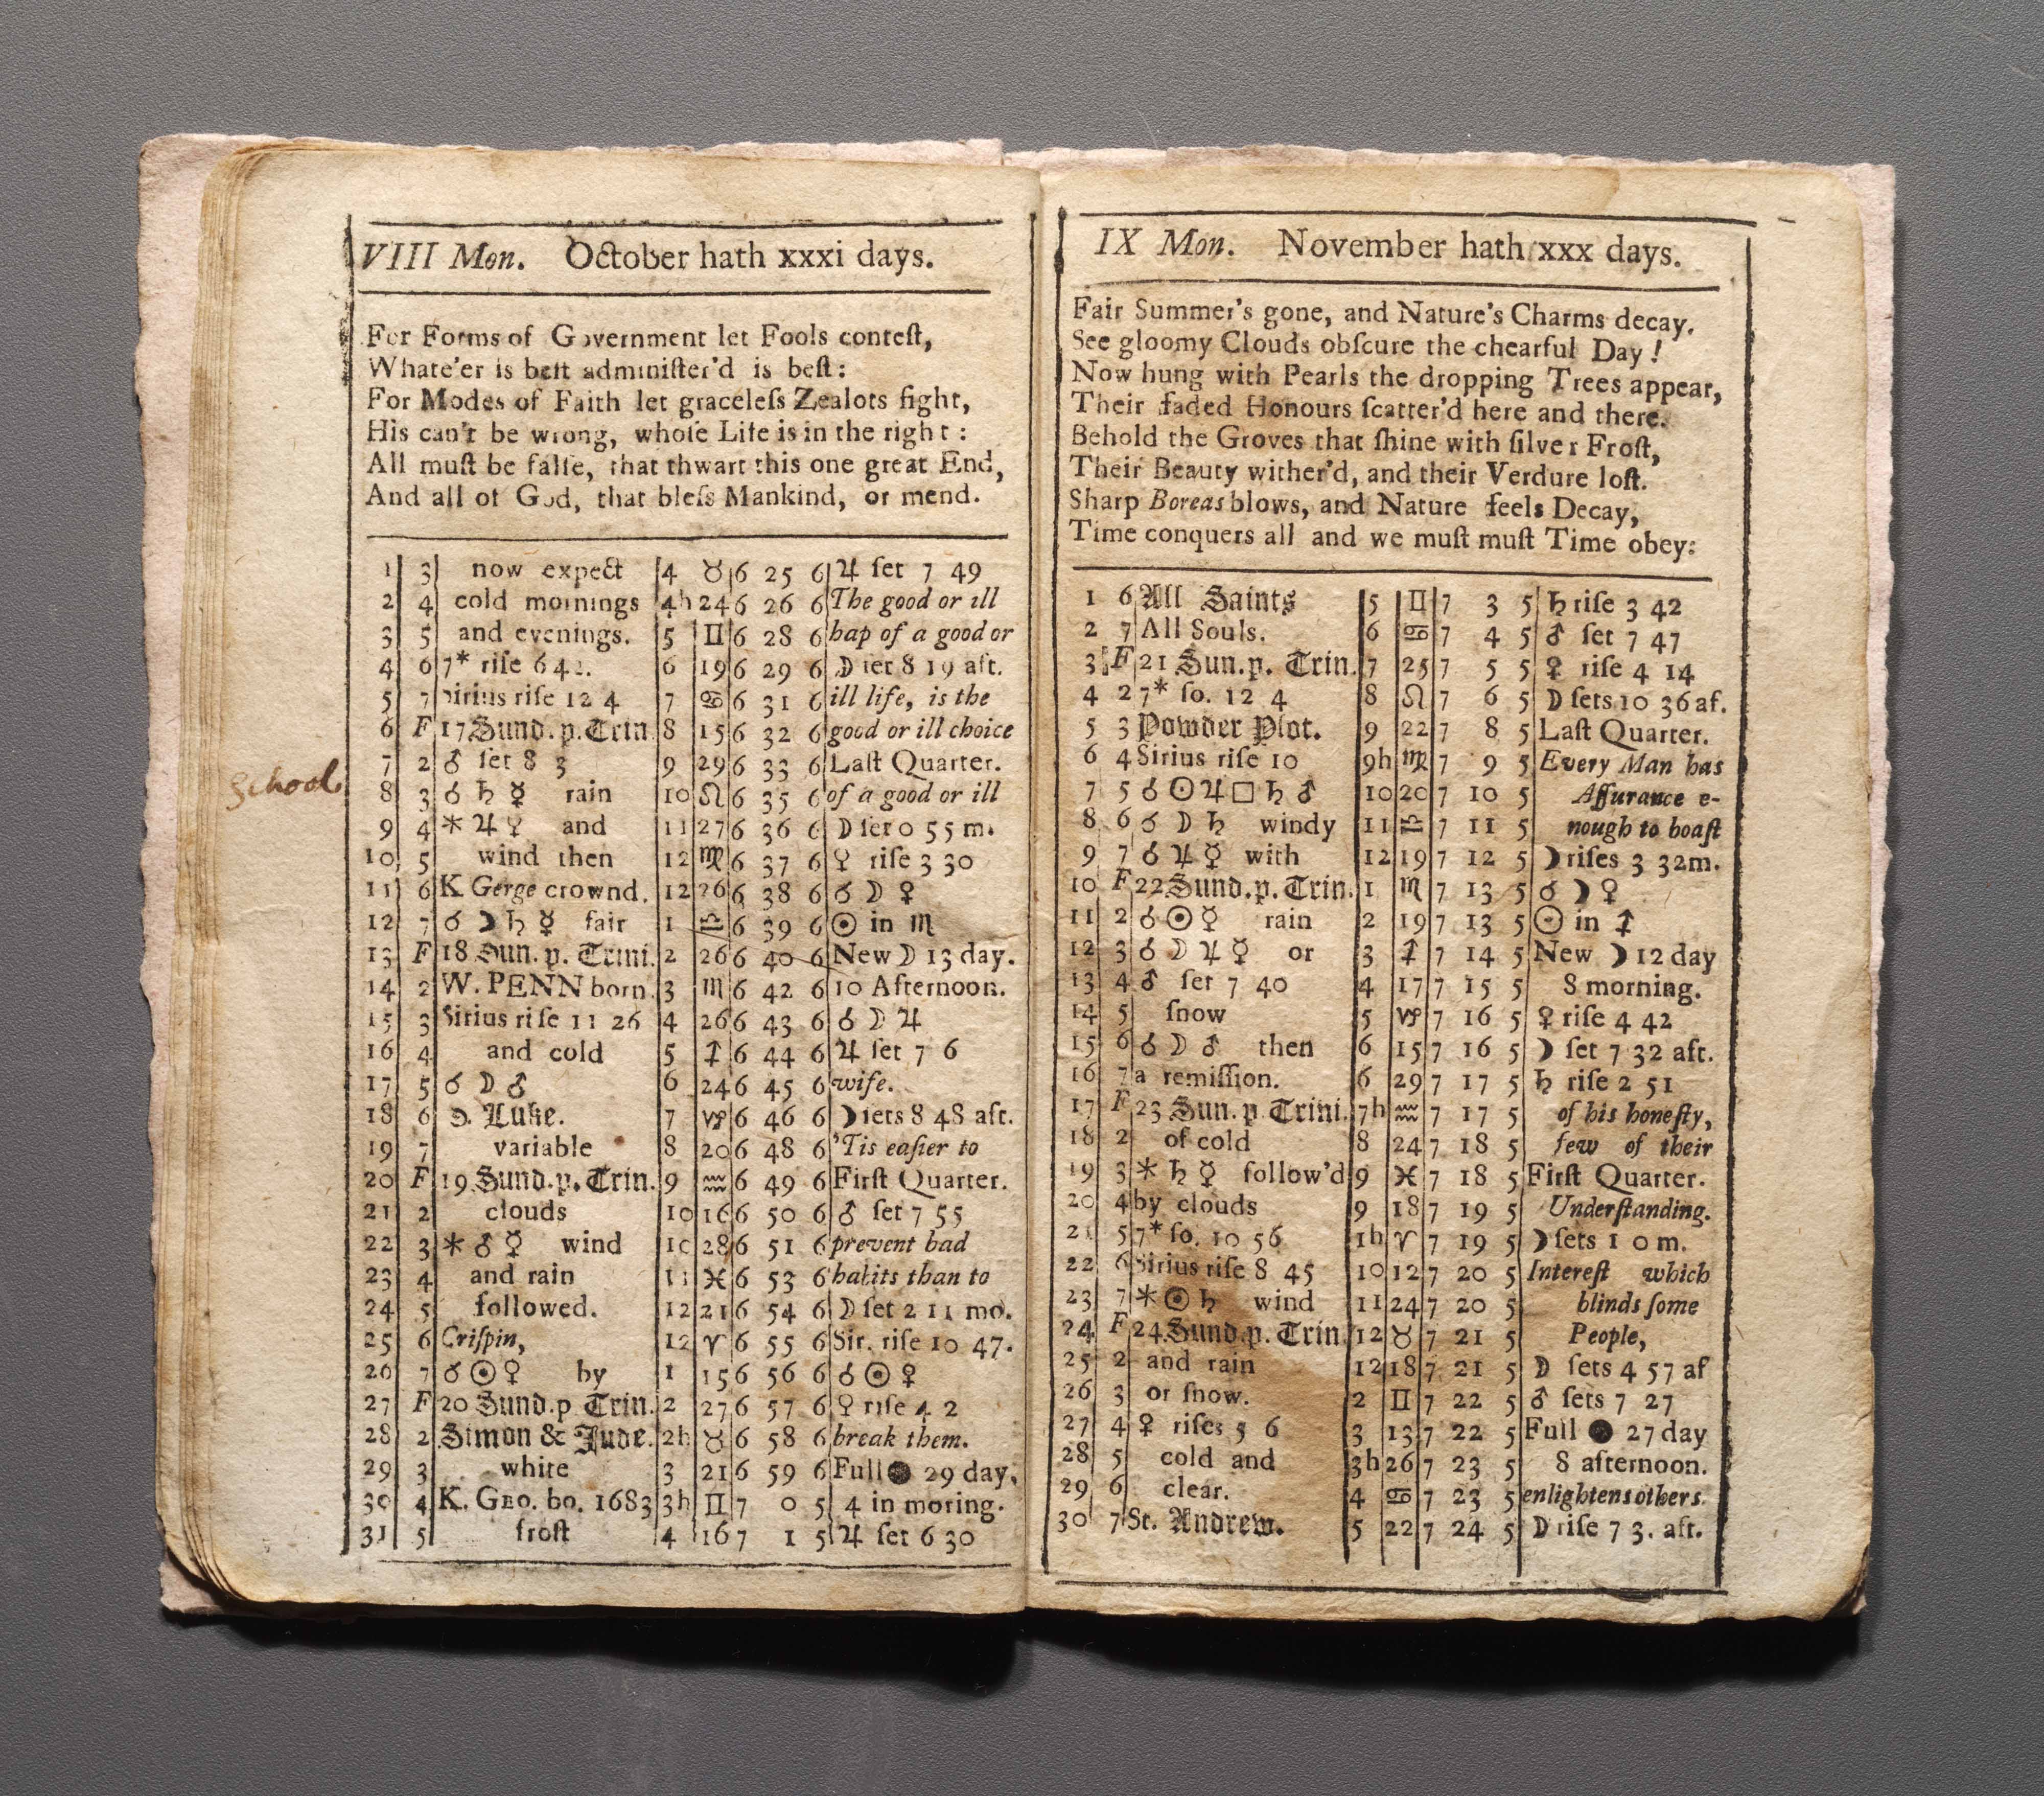 VIII Mon. October hath xxxi days.
For Forms of Government let Fools conteſt,
Whate'er is beſt adminiſter'd is beſt:
For Modes of Faith let graceleſs Zealots fight,
His can't be wrong, whoſe Life is in the right:
All muſt be falſe, that thwart this one great End,
And all of God, that bleſs Mankind, or mend.
1 3 now expect 4 ♉ 6 25 6 ♃ ſet 7 49
2 4 cold mornings 4h 24 6 26 6 The good or ill
3 5 and evenings. 5 ♊ 6 28 6 hap of a good or
4 6 7* riſe 6 42. 6 19 6 29 6 ☽ ſet 8 19 aft.
5 7 Sirius riſe 12 4 7 ♋ 6 31 6 ill life, is the
6 F 17 Sund. p. Trin 8 15 6 32 6 good or ill choice
7 2 ♂ ſet 8 3 9 29 6 33 6 Laſt Quarter.
School
8 3 ☌ ♄ ☿ rain 10 ♌ 6 35 6 of a good or ill
9 4 * ♃ ♀ and 11 27 6 36 6 ☽ ſet 0 55 m.
10 5 wind then 12 ♍ 6 37 6 ♀ riſe 3 30
11 6 K Gerge crownd. 12 26 6 38 6 ☌ ☽ ♀
12 7 ☌ ☽ ♄ ☿ fair 1 ♎ 6 39 6 ☉ in ♏
13 F 18 Sun. p. Trini. 2 26 6 40 6 New ☽ 13 day.
14 2 W. PENN born 3 ♏ 6 42 6 10 Afternoon.
15 3 Sirius riſe 11 26 4 26 6 43 6 ☌ ☽ ♃
16 4 and cold 5 ♐ 6 44 6 ♃ ſet 7 6
17 5 ☌ ☽ ♂ 6 24 6 45 6 wife.
18 6 S. Luke. 7 ♑ 6 46 6 ☽ ſets 8 48 aft.
19 7 variable 8 20 6 48 6 'Tis eaſier to
20 F 19 Sund. p. Trin. 9 ♒ 6 49 6 Firſt Quarter.
21 2 clouds 10 16 6 50 6 ♂ ſet 7 55
22 3 * ♂ ☿ wind 10 28 6 51 6 prevent bad
23 4 and rain 11 ♓ 6 53 6 habits than to
24 5 followed. 12 21 6 54 6 ☽ ſet 2 11 mo.
25 6 Criſpin, 12 ♈ 6 55 6 Sir. riſe 10 47.
26 7 ☌ ☉ ♀ by 1 15 6 56 6 ☌ ☉ ♀
27 F 20 Sund. p Trin. 2 27 6 57 6 ♀ riſe 4 2
28 2 Simon & Jude. 2h ♉ 6 58 6 break them.
29 3 white 3 21 6 59 6 Full ● 29 day,
30 4 K. GEO. bo. 1683 3h ♊ 7 0 5 4 in moring.
31 5 froſt 4 16 7 1 5 ♃ ſet 6 30
IX Mon. November hath xxx days.
Fair Summer's gone, and Nature's Charms decay.
See gloomy Clouds obſcure the chearful Day!
Now hung with Pearls the dropping Trees appear,
Their faded Honours ſcatter'd here and there.
Behold the Groves that ſhine with ſilver Froſt,
Their Beauty wither'd, and their Verdure loſt.
Sharp Boreas blows, and Nature feels Decay,
Time conquers all and we muſt muſt Time obey:
1 6 All Saints 5 ♊ 7 3 5 ♄ riſe 3 42
2 7 All Souls. 6 ♋ 7 4 5 ♂ ſet 7 47
3 F 21 Sun. p. Trin. 7 25 7 5 5 ♀ riſe 4 14
4 2 7* ſo. 12 4 8 ♌ 7 6 5 ☽ ſets 10 36 af.
5 3 Powder Plot. 9 22 7 8 5 Laſt Quarter.
6 4 Sirius riſe 10 9h ♍ 7 9 5 Every Man has
7 5 ☌ ☉ ♃ □ ♄ ♂ 10 20 7 10 5 Aſſurance e-
8 6 ☌ ☽ ♄ windy 11 ♎ 7 11 5 nough to boaſt
9 7 ☌ ♃ ☿ with 12 19 7 12 5 ☽ riſes 3 32m.
10 F 22 Sund. p. Trin. 1 ♏ 7 13 5 ☌ ☽ ♀
11 2 ☌ ☉ ☿ rain 2 19 7 13 5 ☉ in ♐
12 3 ☌ ☽ ♃ ☿ or 3 ♐ 7 14 5 New ☽ 12 day
13 4 ♂ ſet 7 40 4 17 7 15 5 8 morning.
14 5 ſnow 5 ♑ 7 16 5 ♀ riſe 4 42
15 6 ☌ ☽ ♂ then 6 15 7 16 5 ☽ ſet 7 32 aft.
16 7 a remiſſion. 6 29 7 17 5 ♄ riſe 2 51
17 F 23 Sun. p Trini. 7h ♒ 7 17 5 of his honeſty,
18 2 of cold 8 24 7 18 5 few of their
19 3 * ♄ ☿ follow'd 9 ♓ 7 18 5 Firſt Quarter.
20 4 by clouds 9 18 7 19 5 Underſtanding.
21 5 7* ſo. 10 56 1h ♈ 7 19 5 ☽ ſets 1 0 m.
22 6 Sirius riſe 8 45 10 12 7 20 5 Intereſt which
23 7 * ☉ ♄ wind 11 24 7 20 5 blinds ſome
24 F 24 Sund. p. Trin. 12 ♉ 7 21 5 People,
25 2 and rain 12 18 7 21 5 ☽ ſets 4 57 af
26 3 or ſnow. 2 ♊ 7 22 5 ♂ ſets 7 27
27 4 ♀ riſes 5 6 3 13 7 22 5 Full ● 27 day
28 5 cold and 3h 26 7 23 5 8 afternoon.
29 6 clear. 4 ♋ 7 23 5 enlightens others.
30 7 St. Andrew. 5 22 7 24 5 ☽ riſe 7 3. aft.